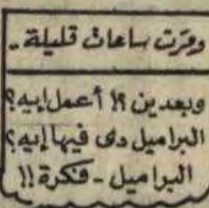 ومرت ساعات قليلة ..
وبعدين ؟! أعمل إيه؟
البراميل دى فيها إيه؟
البراميل - فكرة !!